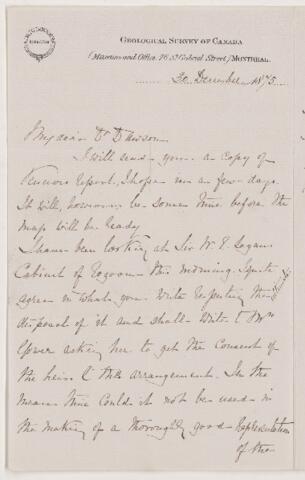 GEOLOGICAL SURVEY OF CANADA
(Museum and Office, 76 St Gabriel Street) MONTREAL.
20 December 1875
My dear Dr Dawson
I will send you a copy of
Report, I hope in a few days.
It will, however be some time before the
map will be ready
I have been looking at Sir W. E. Logan's
Cabinet of Eozoon this morning. I quite
agree in what you write respecting the
disposal of it and shall write to Mrs
Gower asking her to get the consent of
the heirs to this arrangement. In the
mean time could it not be used in
the making of a thoroughly good representation
of the